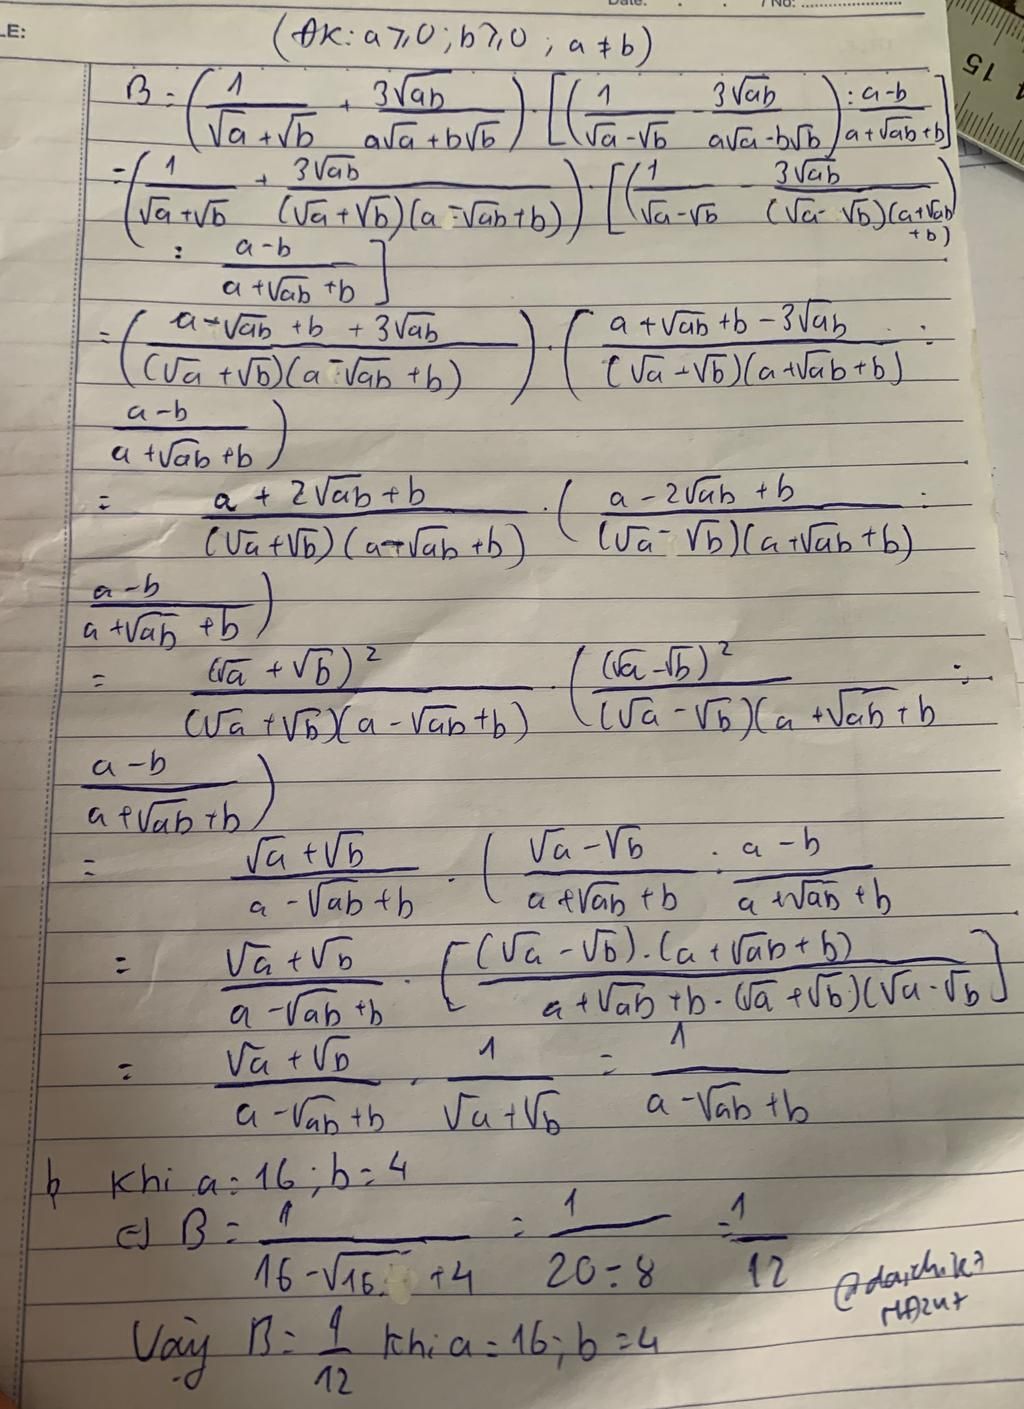 Date: . . / No:
LE:
(ĐK: a ⩾ 0; b ⩾ 0; a ≠ b)
B = (1/(√a + √b) + 3√ab/(a√a + b√b)) · [(1/(√a - √b) - 3√ab/(a√a - b√b)) : (a-b)/(a + √ab + b)]
= (1/(√a + √b) + 3√ab/((√a + √b)(a - √ab + b))) · [(1/(√a - √b) - 3√ab/((√a - √b)(a + √ab + b)))
: (a-b)/(a + √ab + b)]
= ((a - √ab + b + 3√ab)/((√a + √b)(a - √ab + b))) · ((a + √ab + b - 3√ab)/((√a - √b)(a + √ab + b)) :
(a-b)/(a + √ab + b))
= (a + 2√ab + b)/((√a + √b)(a - √ab + b)) · ((a - 2√ab + b)/((√a - √b)(a + √ab + b)) :
(a-b)/(a + √ab + b))
= (√a + √b)²/((√a + √b)(a - √ab + b)) · ((√a - √b)²/((√a - √b)(a + √ab + b) :
(a-b)/(a + √ab + b))
= (√a + √b)/(a - √ab + b) · ((√a - √b)/(a + √ab + b) : (a - b)/(a + √ab + b)
= (√a + √b)/(a - √ab + b) · [(√a - √b).(a + √ab + b)/(a + √ab + b · (√a + √b)(√a - √b)]
= (√a + √b)/(a - √ab + b) · 1/(√a + √b) = 1/(a - √ab + b)
b Khi a = 16; b = 4
⇒ B = 1/(16 - √16. + 4) = 1/(20 - 8) = 1/12
Vậy B = 1/12 khi a = 16; b = 4
15